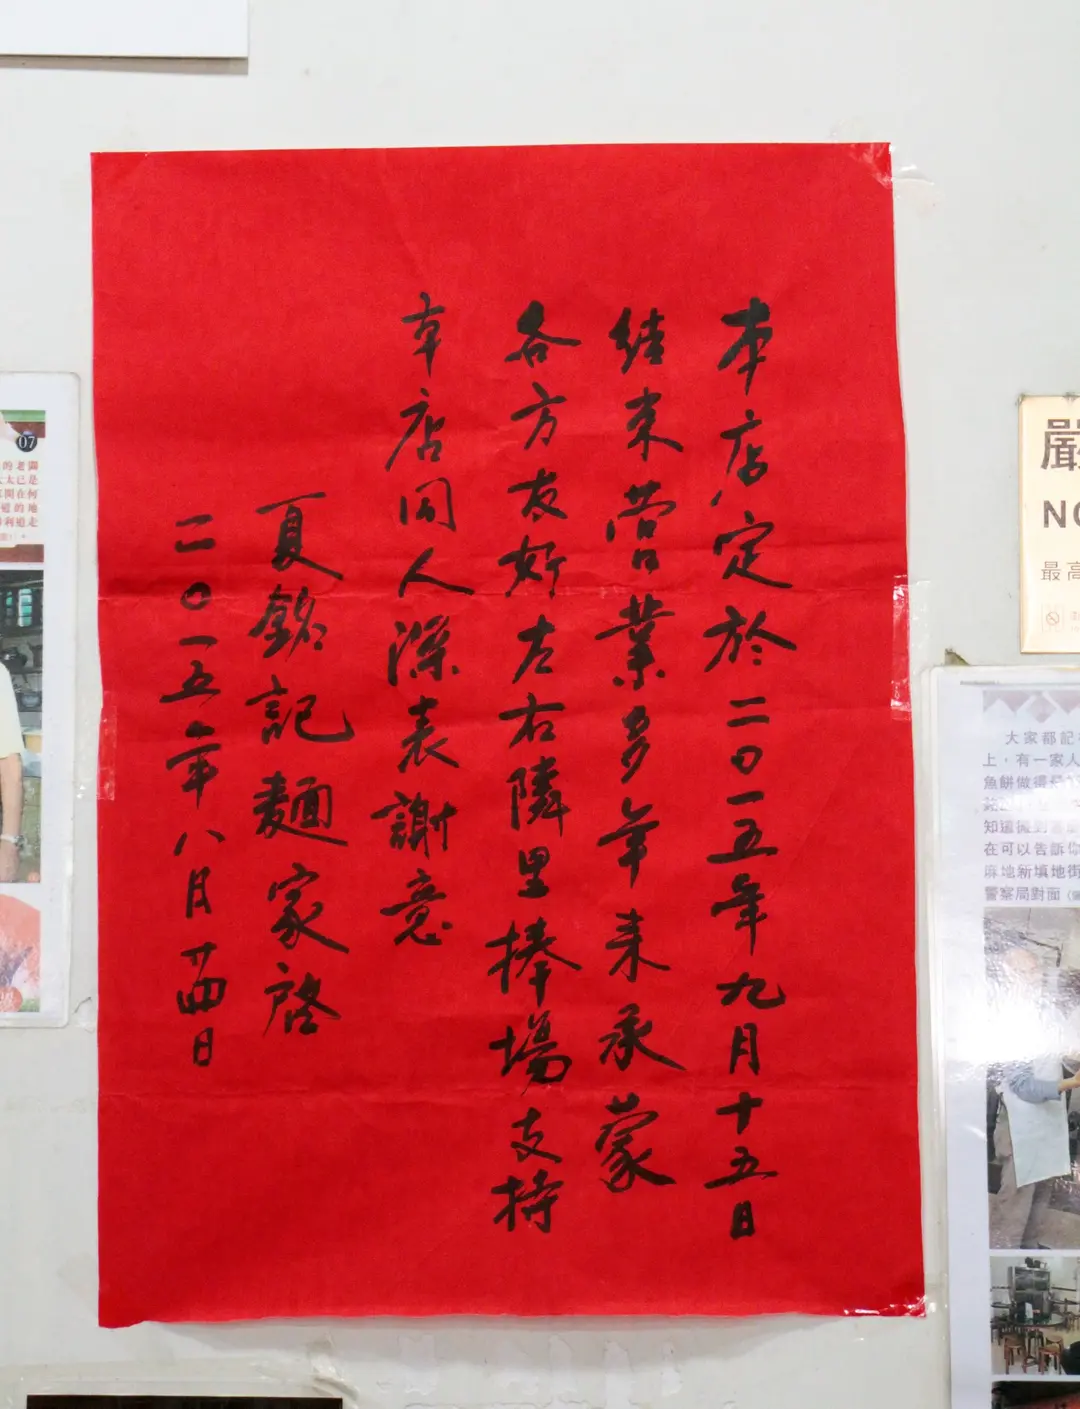 本店定於二〇一五年九月十五日
結束營業多年來承蒙
各方友好左右隣里捧場支持
本店同人深表謝意
夏銘記麵家啓
二〇一五年八月廿四日
07
的老闆
太太已是
利追走
嚴
NO
最高
大家都記
上，有一家人
魚餅做得
知道
在可以告訴你
麻地新填地街
警察局對面